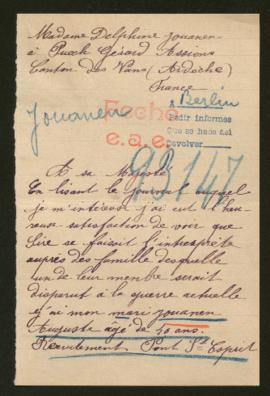 Madame Delphine Jouanen
à Puech Gérard Assions
Canton des Vans (Ardèche)
France
A Berlin
Pedir informes
Que se hace del
devolver
Jouanen
Fecho
e.a.e.
92147
A sa Majesté
En lisant le journal auquel
je m'intéresse j'ai eut l'heu-
reuse satisfaction de voir que
Sire se faisait l'interprète
auprès des famille desquelle
un de leur membre serait
disparut à la guerre actuelle
j'ai mon mari jouanen
Auguste agé de 40 ans.
Recrutement Pont St Esprit